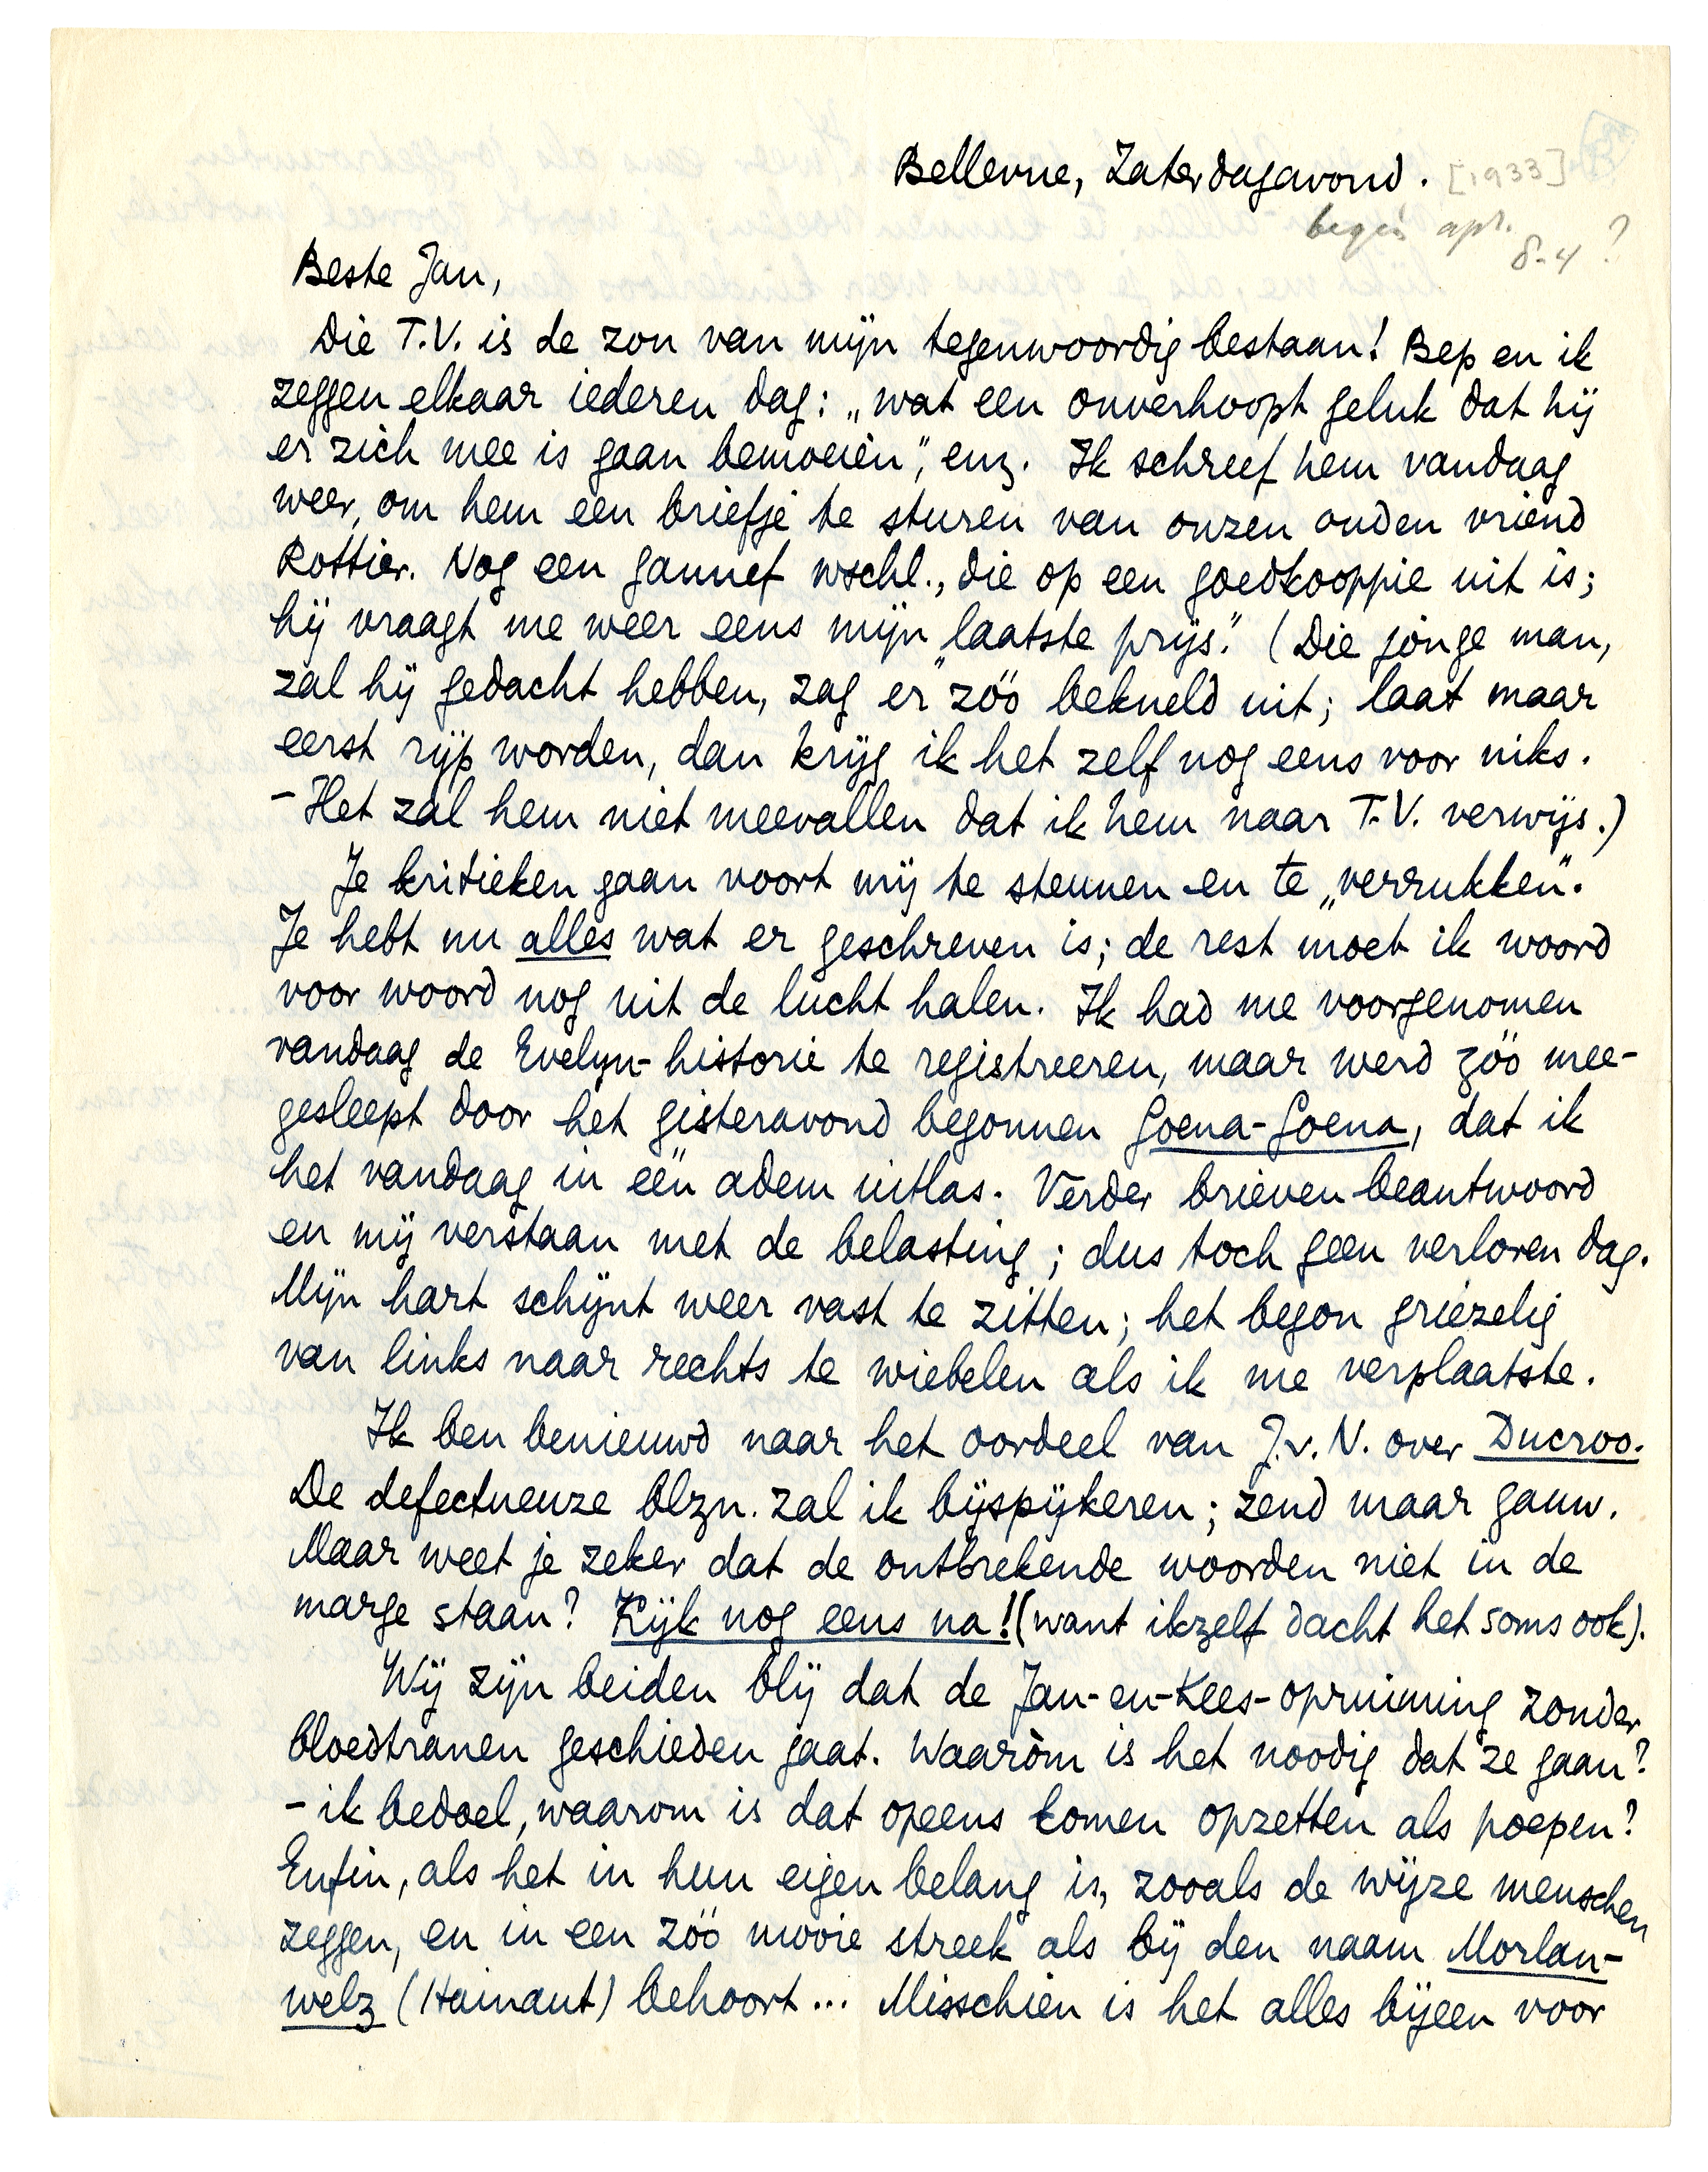 Bellevue, Zaterdagavond. [1933]
begin apr.
8-4?
Beste Jan,
Die T.V. is de zon van mijn tegenwoordig bestaan! Bep en ik
zeggen elkaar iederen dag: „wat een onverhoopt geluk dat hij
er zich mee is gaan bemoeien", enz. Ik schreef hem vandaag
weer, om hem een briefje te sturen van onzen ouden vriend
Rottier. Nog een gannef wschl., die op een goedkooppie uit is;
hij vraagt me weer eens mijn „laatste prijs". (Die jonge man,
zal hij gedacht hebben, zag er zóó bekneld uit; laat maar
eerst rijp worden, dan krijg ik het zelf nog eens voor niks.
- Het zal hem niet meevallen dat ik hem naar T.V. verwijs.)
Je kritieken gaan voort mij te steunen en te „verrukken".
Je hebt nu alles wat er geschreven is; de rest moet ik woord
voor woord nog uit de lucht halen. Ik had me voorgenomen
vandaag de Evelyn-historie te registreeren, maar werd zóó mee-
gesleept door het gisteravond begonnen Goena-Goena, dat ik
het vandaag in één adem uitlas. Verder brieven beantwoord
en mij verstaan met de belasting; dus toch geen verloren dag.
Mijn hart schijnt weer vast te zitten; het begon griezelig
van links naar rechts te wiebelen als ik me verplaatste.
Ik ben benieuwd naar het oordeel van J.v.N. over Ducroo.
De defectueuze blzn. zal ik bijspijkeren; zend maar gauw.
Maar weet je zeker dat de ontbrekende woorden niet in de
marge staan? Kijk nog eens na! (want ikzelf dacht het soms ook).
Wij zijn beiden blij dat de Jan-en-Kees-opruiming zonder
bloedtranen geschieden gaat. Waaròm is het noodig dat ze gaan?
- ik bedoel, waarom is dat opeens komen opzetten als poepen?
Enfin, als het in hun eigen belang is, zooals de wijze menschen
zeggen, en in een zóó mooie streek als bij den naam Morlan-
welz (Hainaut) behoort... Misschien is het alles bijeen voor